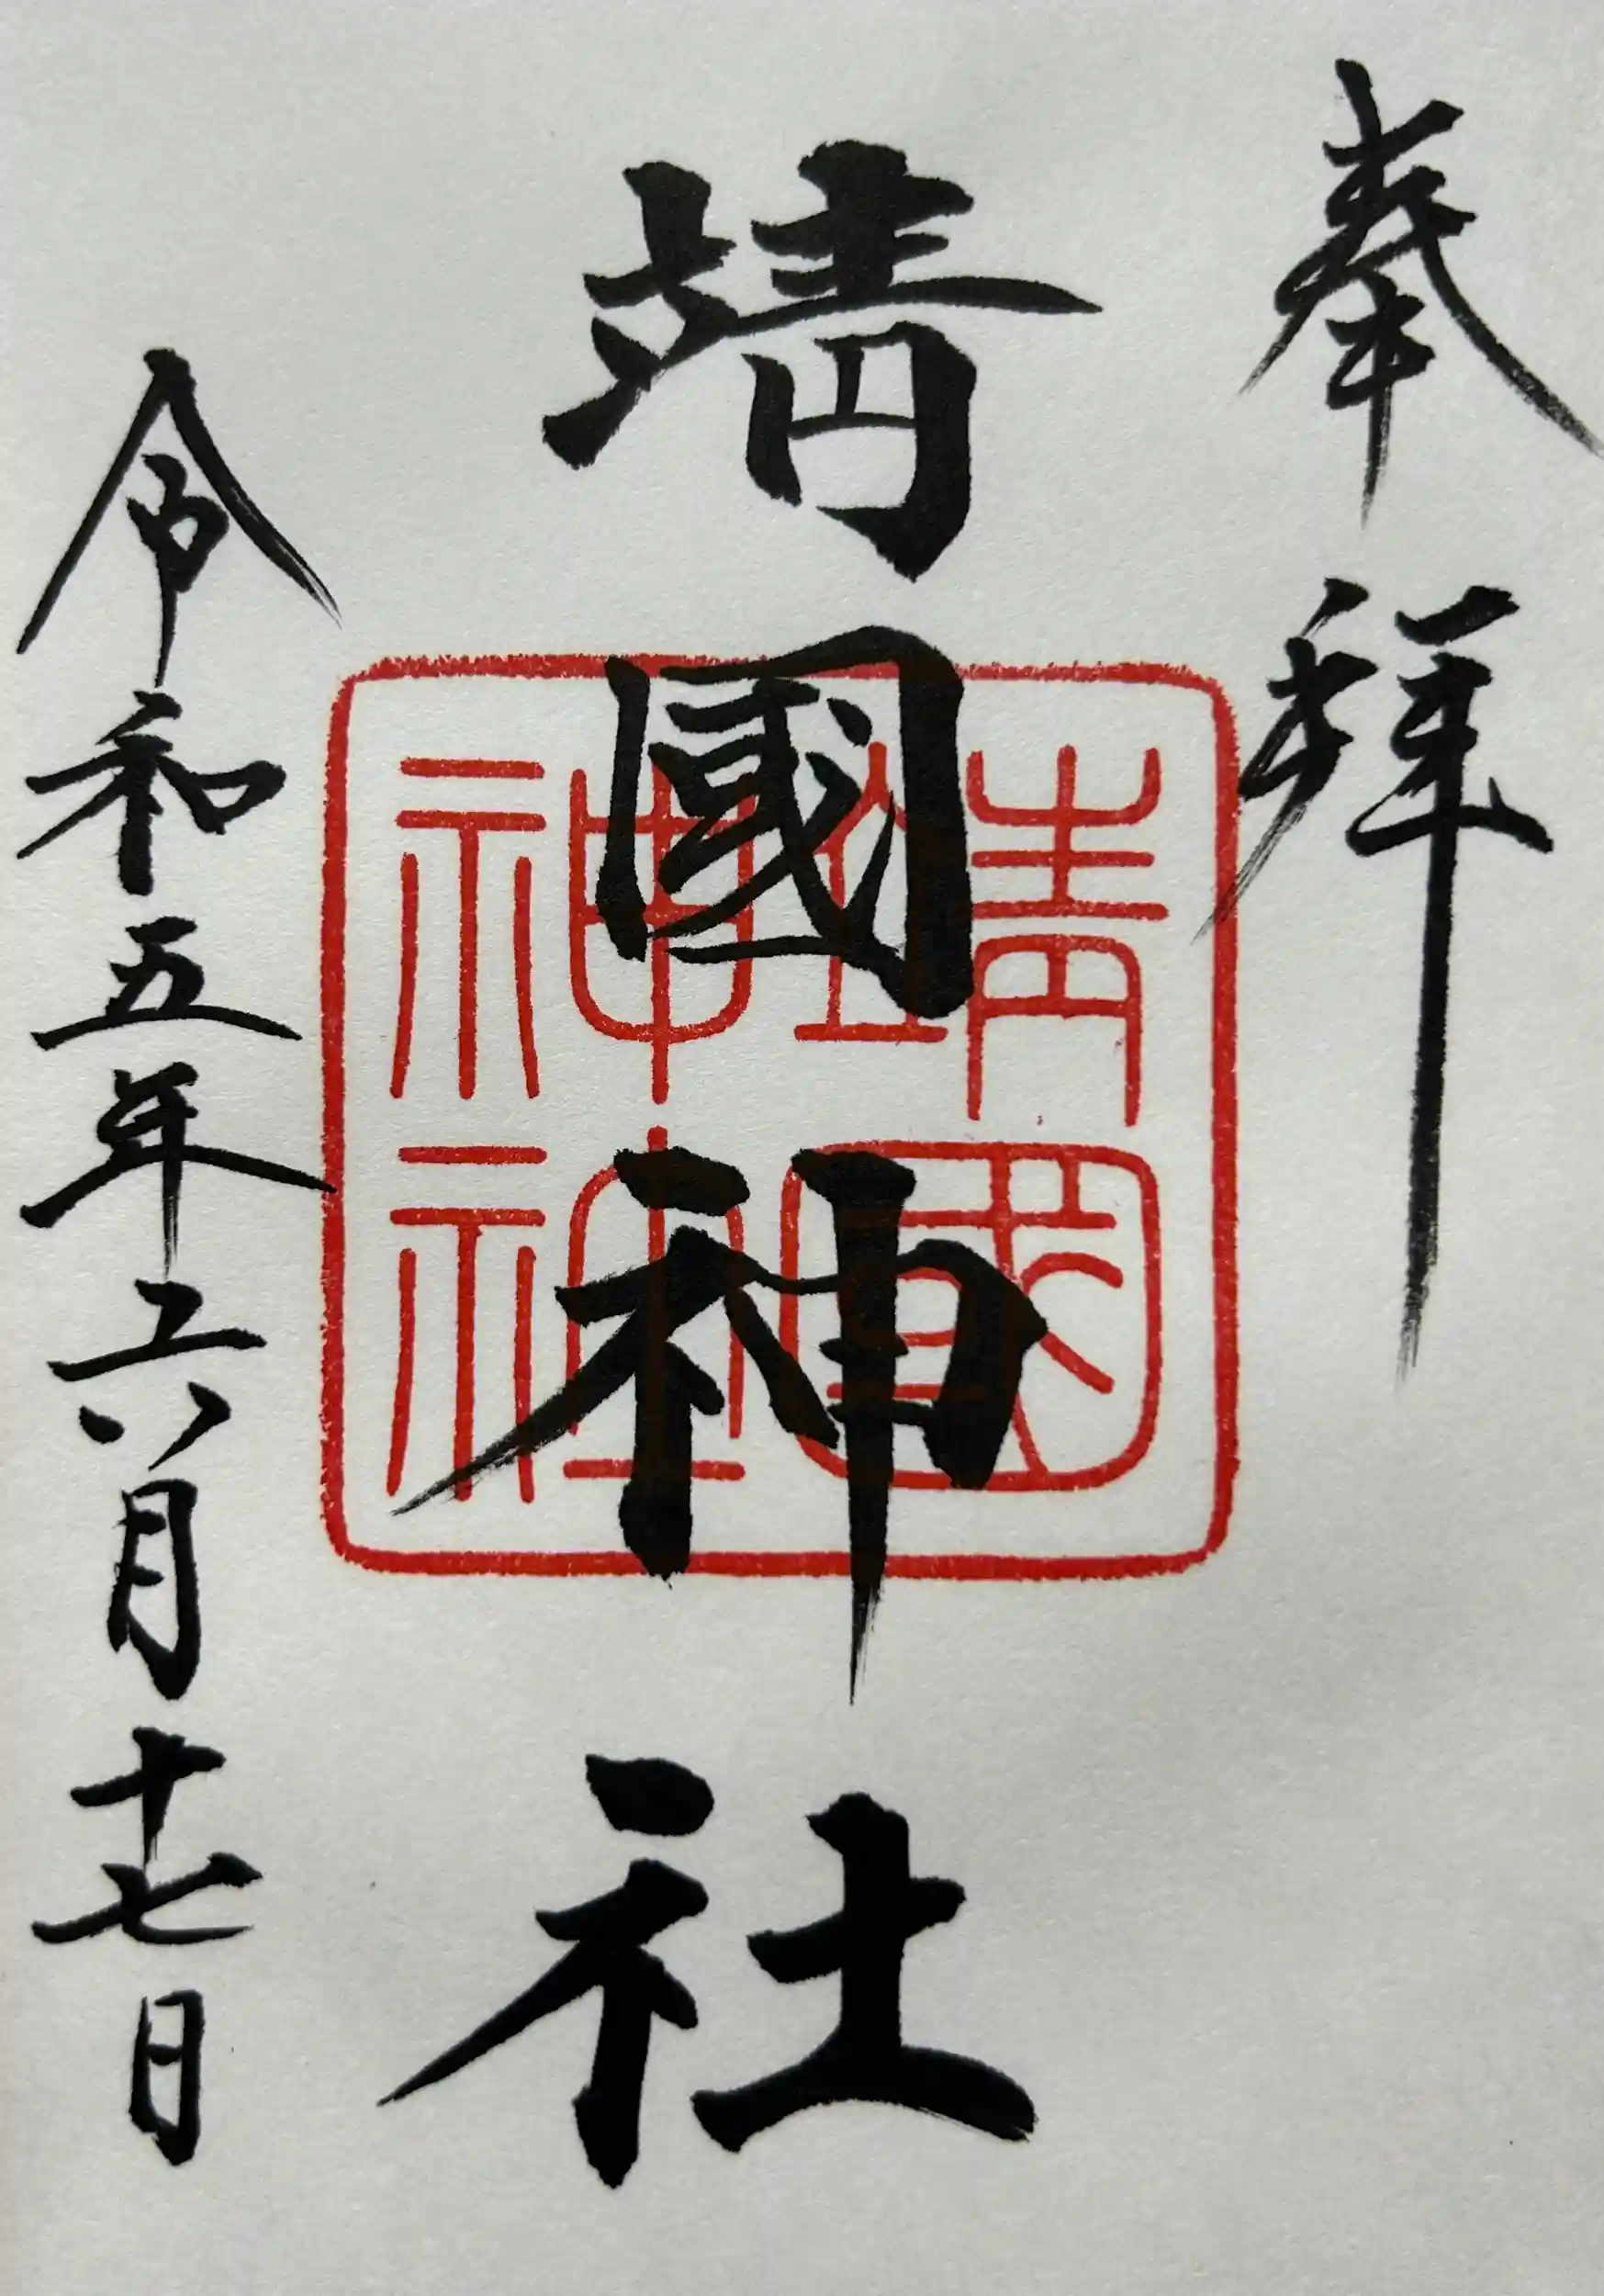 奉拜
靖國神社
靖國
神社
令和五年六月十七日